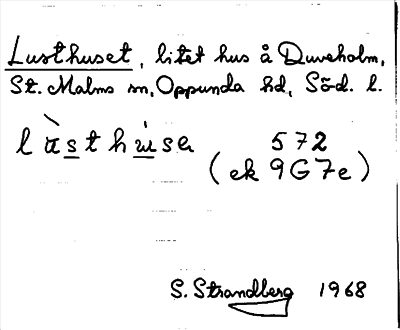 Lusthuset, litet hus å Duveholm,
St. Malms sn, Oppunda hd, Söd. l.
lùsthúsa 572
(ek 9G7e)
S. Strandberg 1968